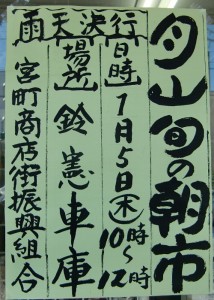 月山旬の朝市
[日時]1月5日(木)10時~12時
[場所]鈴憲車庫
雨天決行
宮町商店街振興組合